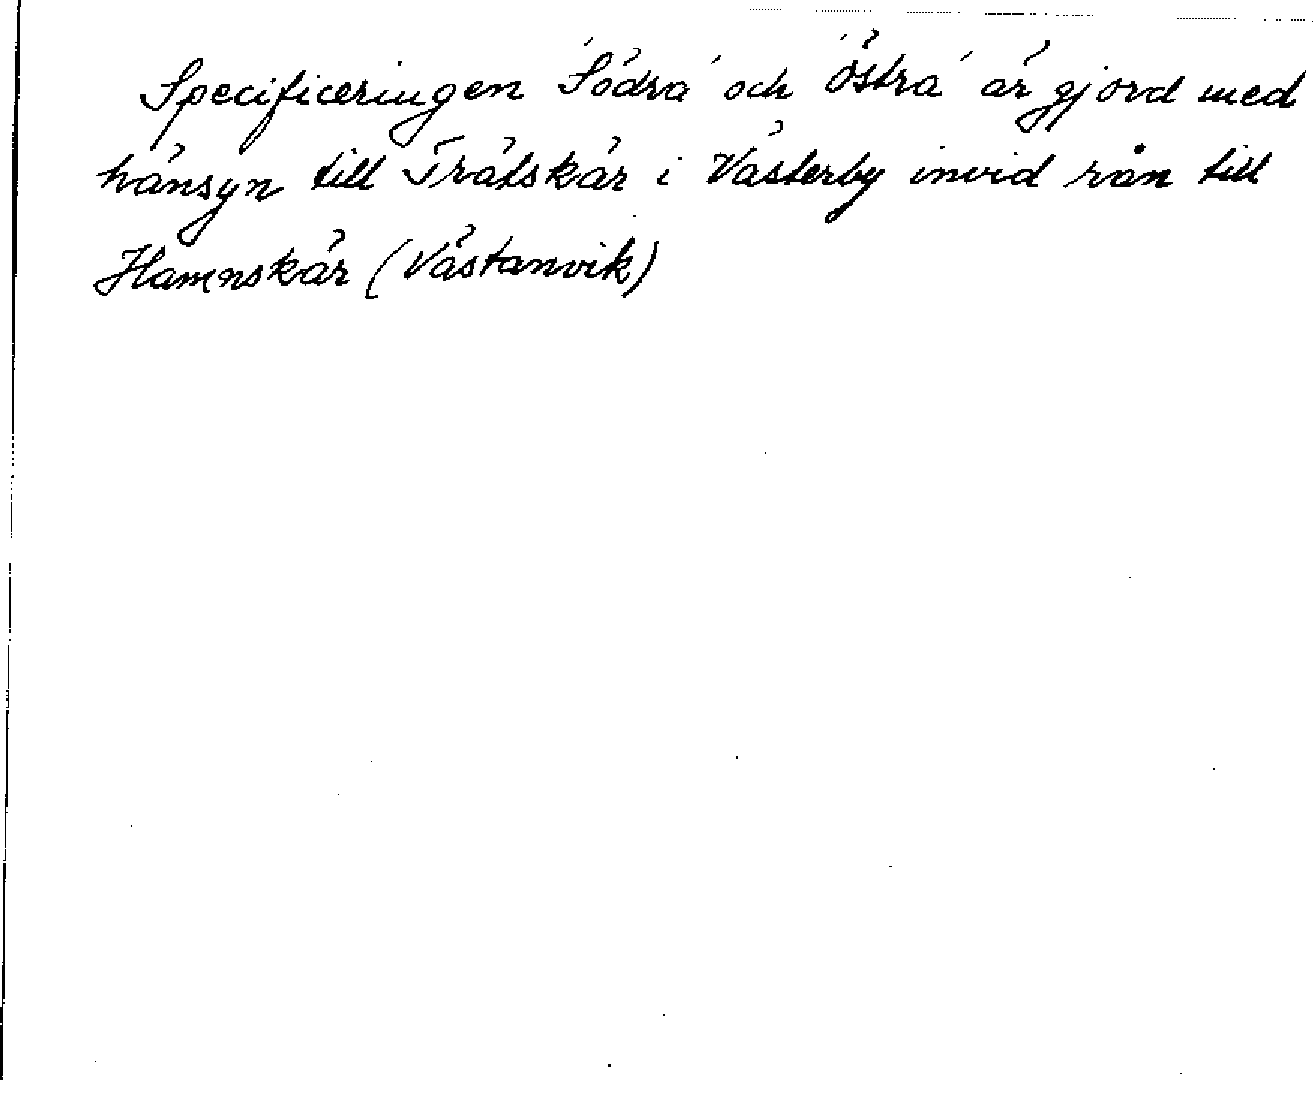 Specificeringen 'Södra' och 'Östra' är gjord med
hänsyn till Trätskär i Västerby invid rån till
Hamnskär (Västanvik)